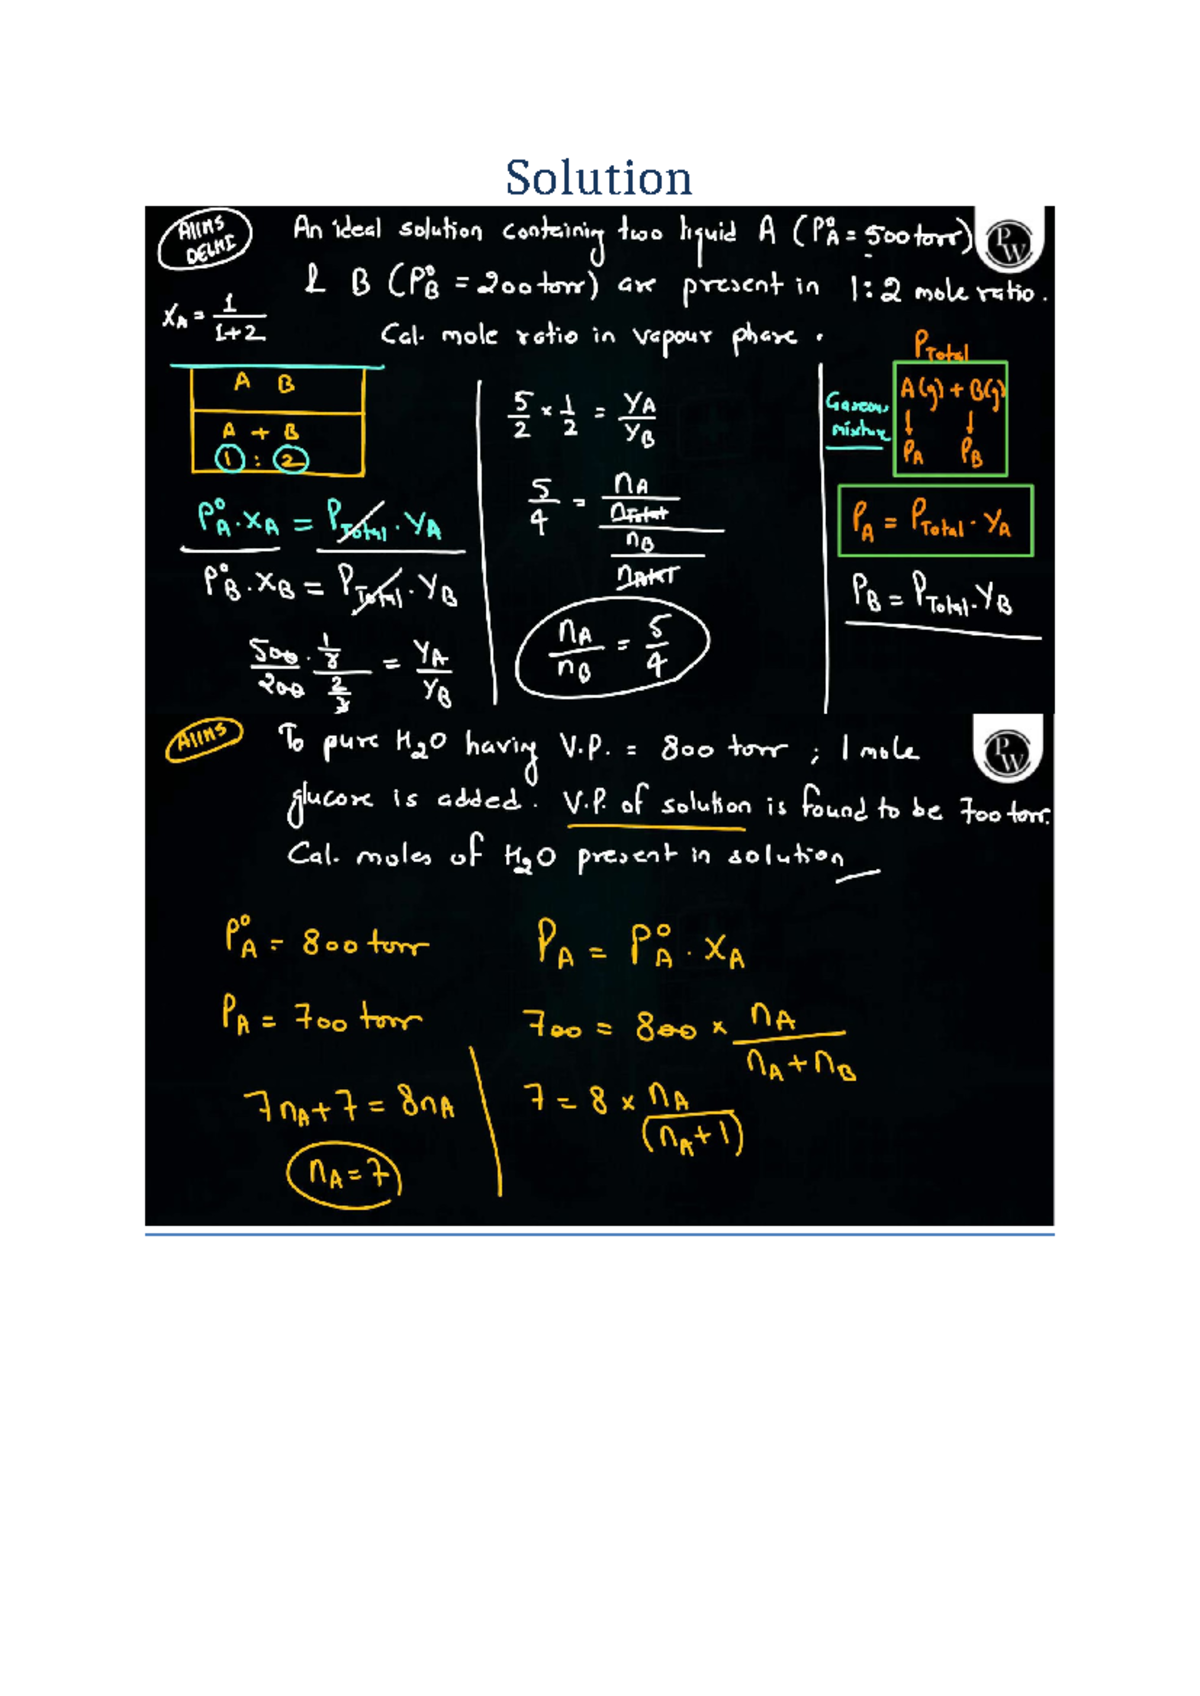 Solution
AIIMS
DELHI
An ideal solution containing two liquid A (P°A = 500 torr)
PW
& B (P°B = 200 torr) are present in 1:2 mole ratio.
XA = 1/(1+2)
Cal. mole ratio in vapour phase.
A B
A + B
1 : 2
P°A.XA = PTotal.YA
P°B.XB = PTotal.YB
500/200 . (1/3)/(2/3) = YA/YB
5/2 × 1/2 = YA/YB
5/4 = (nA/nTotal)/(nB/nTotal)
nA/nB = 5/4
PTotal
Gaseous
mixture
A(g) + B(g)
↓ ↓
PA PB
PA = PTotal.YA
PB = PTotal.YB
AIIMS
To pure H2O having V.P. = 800 torr ; 1 mole
PW
glucose is added. V.P. of solution is found to be 700 torr.
Cal. moles of H2O present in solution
P°A = 800 torr
PA = 700 torr
PA = P°A . XA
700 = 800 × nA/(nA + nB)
7 = 8 × nA/(nA+1)
7nA + 7 = 8nA
nA = 7